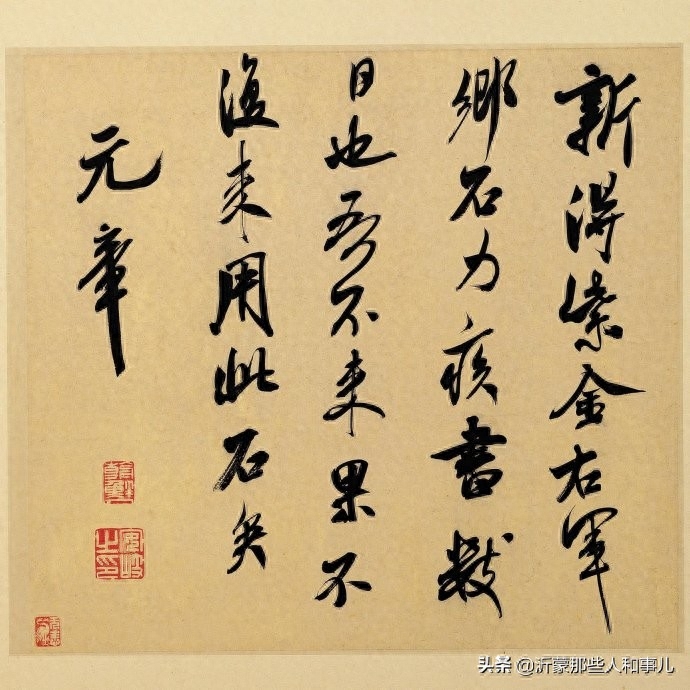 新得紫金右軍
鄉石力疾書數
日也吾不來果不
復來用此石矣
元章
头条 @沂蒙那些人和事儿